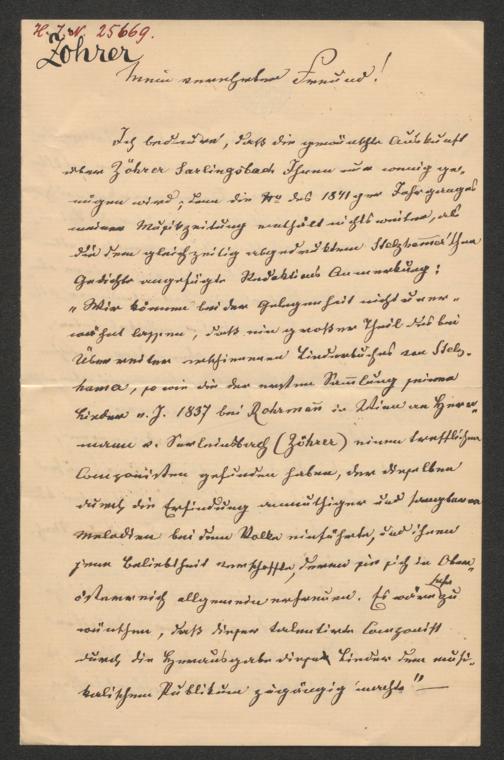 H. I. N. 25669.
Zöhrer
Mein verehrter Freund!
Ich bedaure, daß die gewünschte Auskunft
über Zöhrer Sarlingsbach Ihnen nur wenig ge-
nügen wird, denn die No des 1841ger Jahrganges
meiner Musikzeitung enthält nichts weiter, als
die dem gleichzeitig abgedruckten Stelzhama'schen
Gedichte angefügte Redaktions Anmerkung:
"Wir können bei der Gelegenheit nicht uner-
wähnt lassen, daß ein großer Theil des bei
Überreiter erschienenen Liederbuches von Stelz-
hama, so wie die der ersten Sam̄lung seiner
Lieder v. J. 1837 bei Rohrman̄ in Wien an Herr-
mann v. Serleinsbach (Zöhrer) einen trefflichen
Componisten gefunden haben, der dieselben
durch die Erfindung anmuthiger und sangbarer
Melodien bei dem Volke einführte, und ihnen
jene Beliebtheit verschaffte, deren sie sich in Ober-
österreich allgemein erfreuen. Es wäre sehr zu
wünschen, daß dieser talentirte Componist
durch die Herausgabe dieser Lieder dem musi-
kalischen Publikum zugängig machte" —